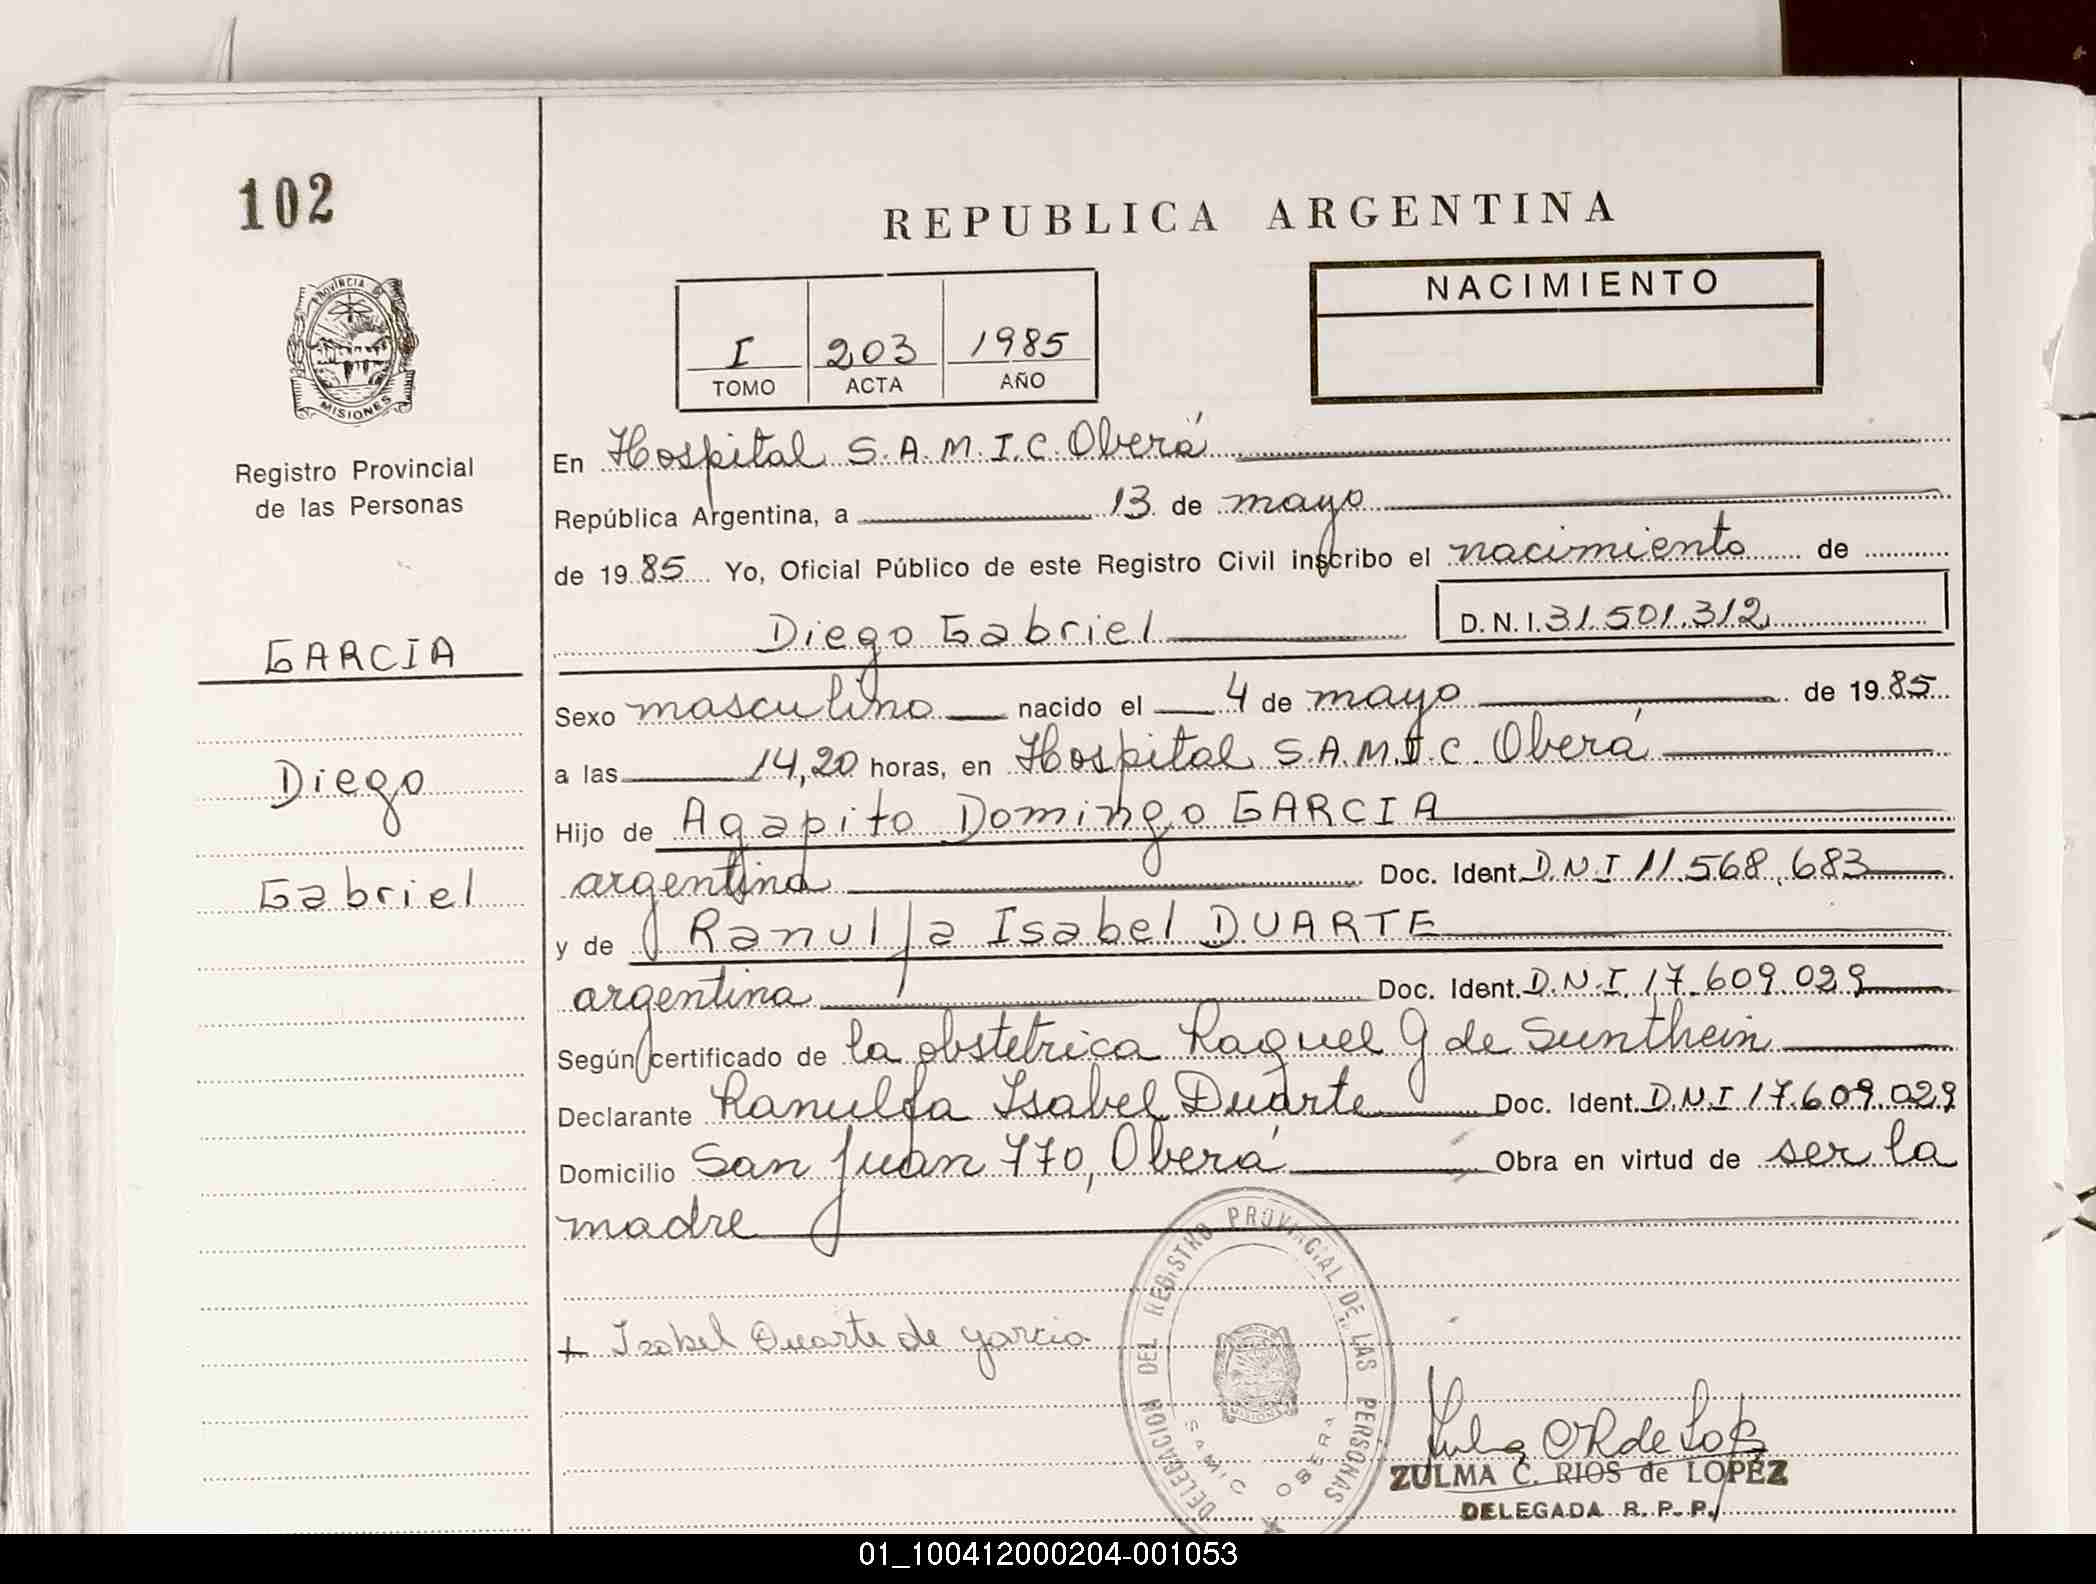 102
REPUBLICA ARGENTINA
PROVINCIA DE
MISIONES
Registro Provincial
de las Personas
I 203 1985
TOMO ACTA AÑO
NACIMIENTO
En Hospital S.A.M.I.C. Oberá
República Argentina, a 13 de mayo
de 1985 Yo, Oficial Público de este Registro Civil inscribo el nacimiento de
Diego Gabriel D.N.I. 31.501.312
GARCIA
Diego
Gabriel
Sexo masculino nacido el 4 de mayo de 1985
a las 14,20 horas, en Hospital S.A.M.I.C. Oberá
Hijo de Agapito Domingo GARCIA
argentina Doc. Ident. D.N.I 11.568.683
y de Ranulfa Isabel DUARTE
argentina Doc. Ident. D.N.I. 17.609.029
Según certificado de la obstetrica Raquel G de Sunthein
Declarante Ranulfa Isabel Duarte Doc. Ident. D.N.I 17.609.029
Domicilio San Juan 770, Oberá Obra en virtud de ser la
madre
+ Isabel Duarte de garcia
DELEGACION DEL REGISTRO PROVINCIAL DE LAS PERSONAS
SAMIC OBERA
ZULMA C. RIOS de LOPEZ
DELEGADA R. P. P.
01_100412000204-001053